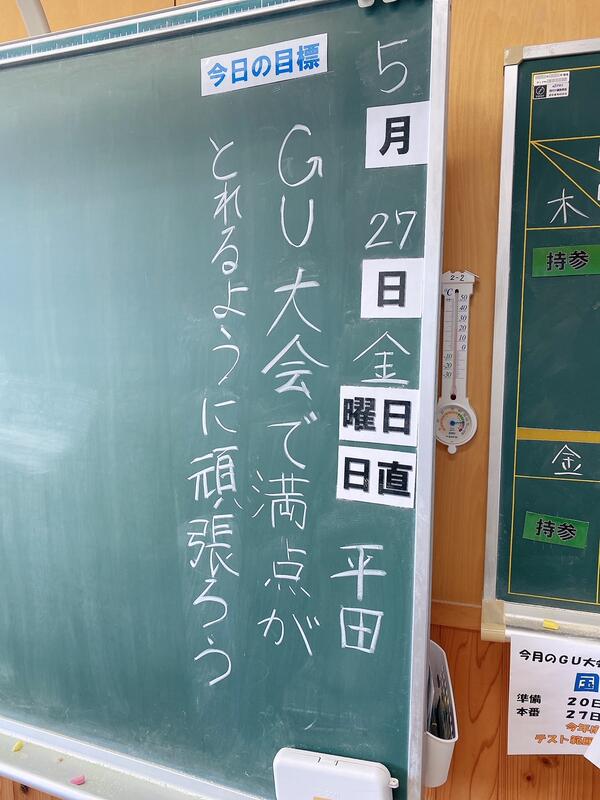 今日の目標
5月27日金曜日
日直 平田
GU大会で満点が
とれるように頑張ろう
2-2
℃
50
40
30
20
10
0
-10
-20
-30
木
持参
金
持参
今月のGU大会
国
準備 20日
本番 27日
テスト範囲